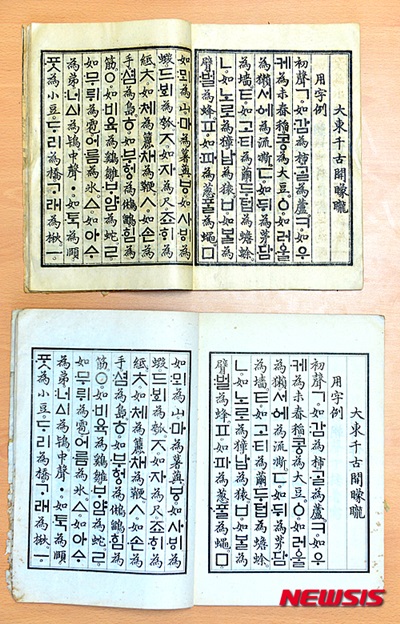 大東千古開矇矓
用字例
初聲ㄱ。如감為柿。ᄀᆞᆯ為蘆。ㅋ。如우
케為未舂稻。콩為大豆。ㆁ。如러울
為獺。서에為流凘。ㄷ。如뒤為茅。담
為墻。ㅌ。如고티為繭。두텁為蟾蜍。
ㄴ。如노로為獐。납為猿。ㅂ。如ᄇᆞᆯ為
臂。벌為蜂。ㅍ。如파為葱。ᄑᆞᆯ為蠅。ㅁ。
如뫼為山。마為薯藇。ㅸ。如사ᄫᅵ為
蝦。드ᄫᅴ為瓠。ㅈ。如자為尺。죠ᄒᆡ為
紙。ㅊ。如체為籭。채為鞭。ㅅ。如손為
手。셤為島。ㅎ。如부헝為鵂鶹。힘為
筋。ㅇ。如비육為鷄雛。ᄇᆞ얌為蛇。ㄹ。
如무뤼為雹。어름為氷。ㅿ。如아ᅀᆞ
為弟。너ᅀᅵ為鴇。中聲ㆍ。如ᄐᆞᆨ為頤。
ᄑᆞᆺ為小豆。ᄃᆞ리為橋。ᄀᆞ래為楸。ㅡ。
大東千古開矇矓
用字例
初聲ㄱ。如감為柿。ᄀᆞᆯ為蘆。ㅋ。如우
케為未舂稻。콩為大豆。ㆁ。如러울
為獺。서에為流凘。ㄷ。如뒤為茅。담
為墻。ㅌ。如고티為繭。두텁為蟾蜍。
ㄴ。如노로為獐。납為猿。ㅂ。如ᄇᆞᆯ為
臂。벌為蜂。ㅍ。如파為葱。ᄑᆞᆯ為蠅。ㅁ。
如뫼為山。마為薯藇。ㅸ。如사ᄫᅵ為
蝦。드ᄫᅴ為瓠。ㅈ。如자為尺。죠ᄒᆡ為
紙。ㅊ。如체為籭。채為鞭。ㅅ。如손為
手。셤為島。ㅎ。如부헝為鵂鶹。힘為
筋。ㅇ。如비육為鷄雛。ᄇᆞ얌為蛇。ㄹ。
如무뤼為雹。어름為氷。ㅿ。如아ᅀᆞ
為弟。너ᅀᅵ為鴇。中聲ㆍ。如ᄐᆞᆨ為頤。
ᄑᆞᆺ為小豆。ᄃᆞ리為橋。ᄀᆞ래為楸。ㅡ。
NEWSIS